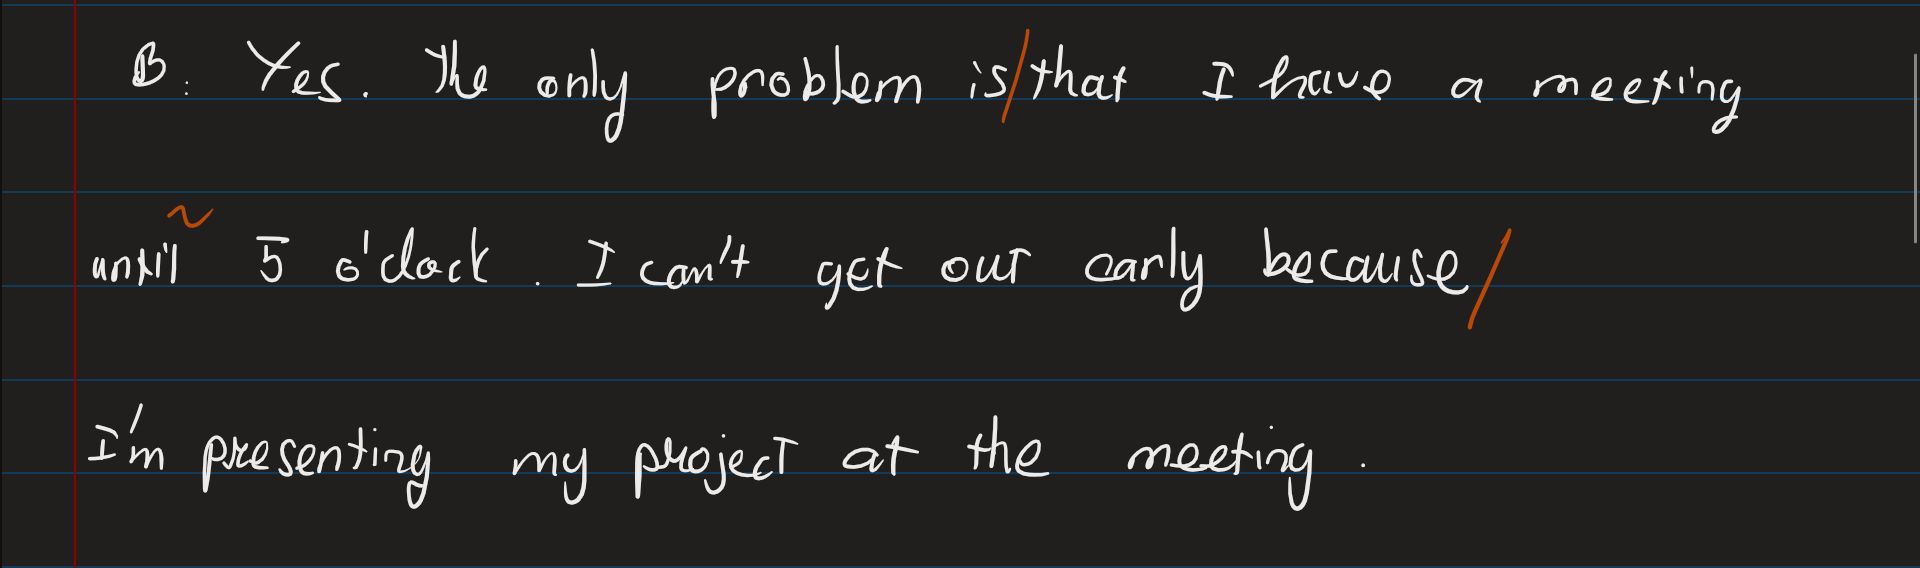 B: Yes. The only problem is/that I have a meeting
until 5 o'clock. I can't get out early because/
I'm presenting my project at the meeting.